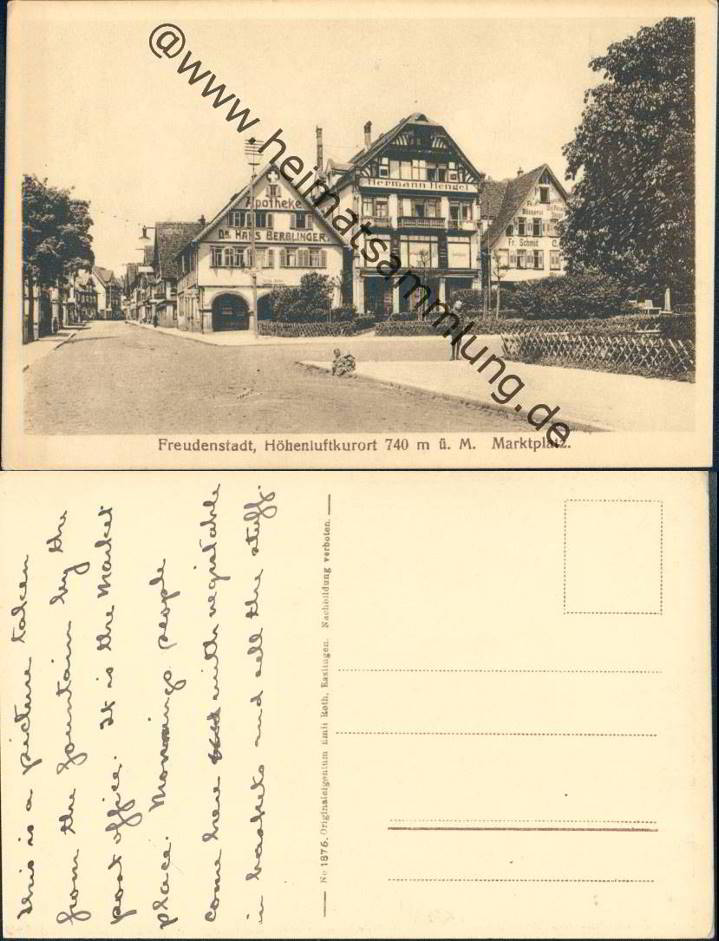 @www.heimatsammlung.de
Apotheke
Dr. HANS BERBLINGER.
Hermann Hengel
Fr. Schmid
Freudenstadt, Höhenluftkurort 740 m ü. M. Marktplatz.
This is a picture taken
from the fountain by the
post office. It is the Market
place. Mornings people
come here with vegetable
in baskets and sell the stuff.
No 1876. Originaleigentum Emil Roth, Esslingen. Nachbildung verboten.